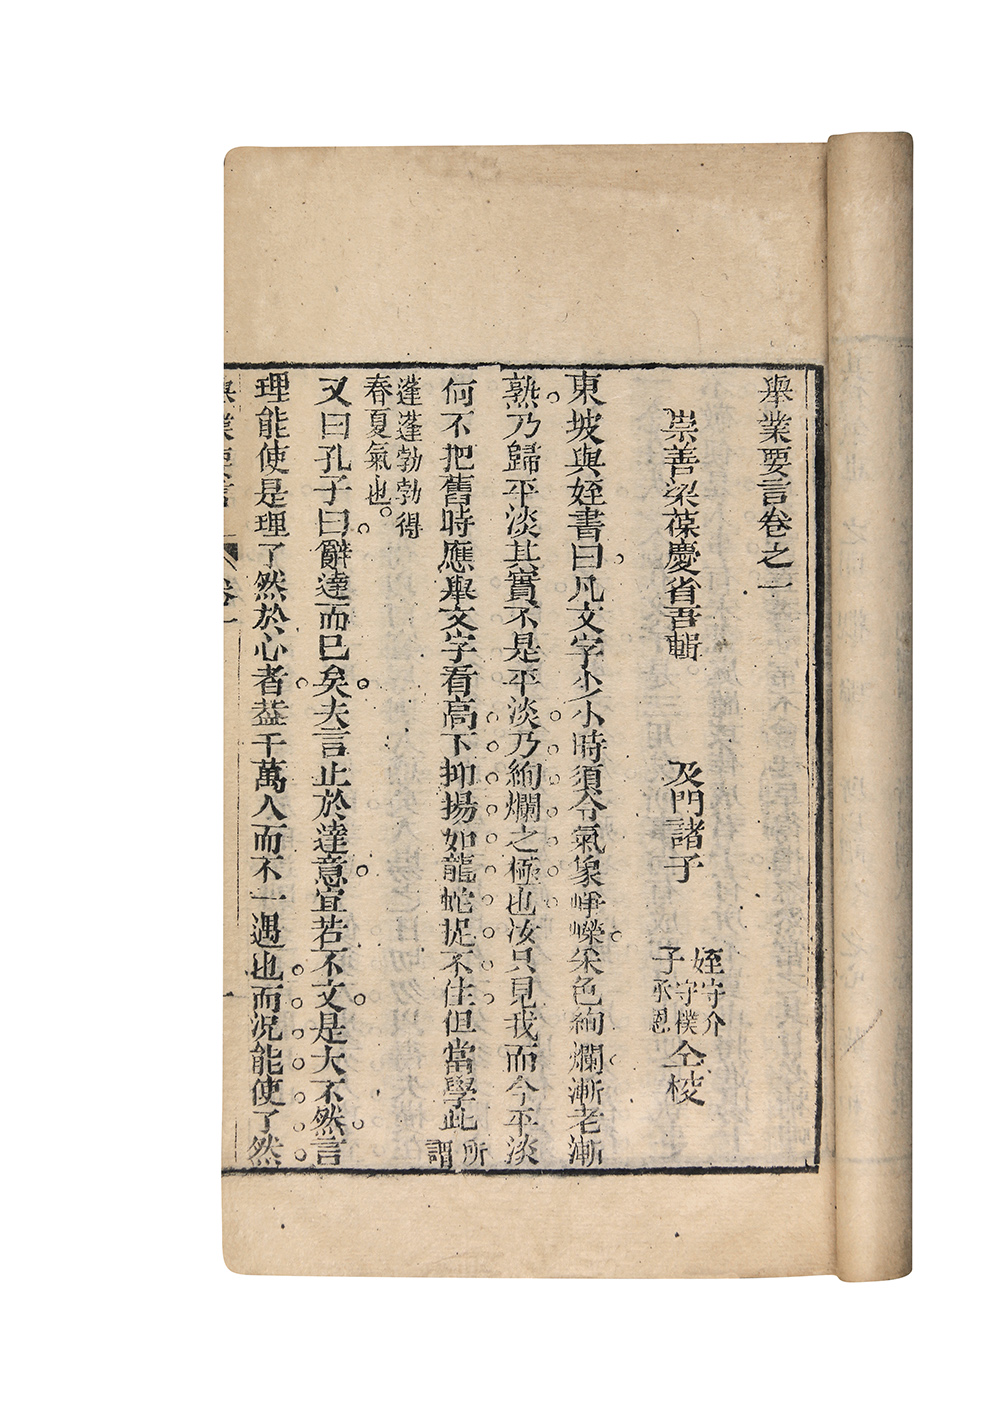 舉業要言卷之一
崇善梁葆慶省吾輯 及門諸子 姪守介 子守樸 承恩 仝校
東坡與姪書曰凡文字少小時須令氣象崢嶸采色絢爛漸老漸
熟乃歸平淡其實不是平淡乃絢爛之極也汝只見我而今平淡
何不把舊時應舉文字看高下抑揚如龍蛇捉不住但當學此所謂
蓬蓬勃勃得
春夏氣也
又曰孔子曰辭達而已矣夫言止於達意宜若不文是大不然言
理能使是理了然於心者蓋千萬人而不一遇也而況能使了然
舉業要言 卷一 一